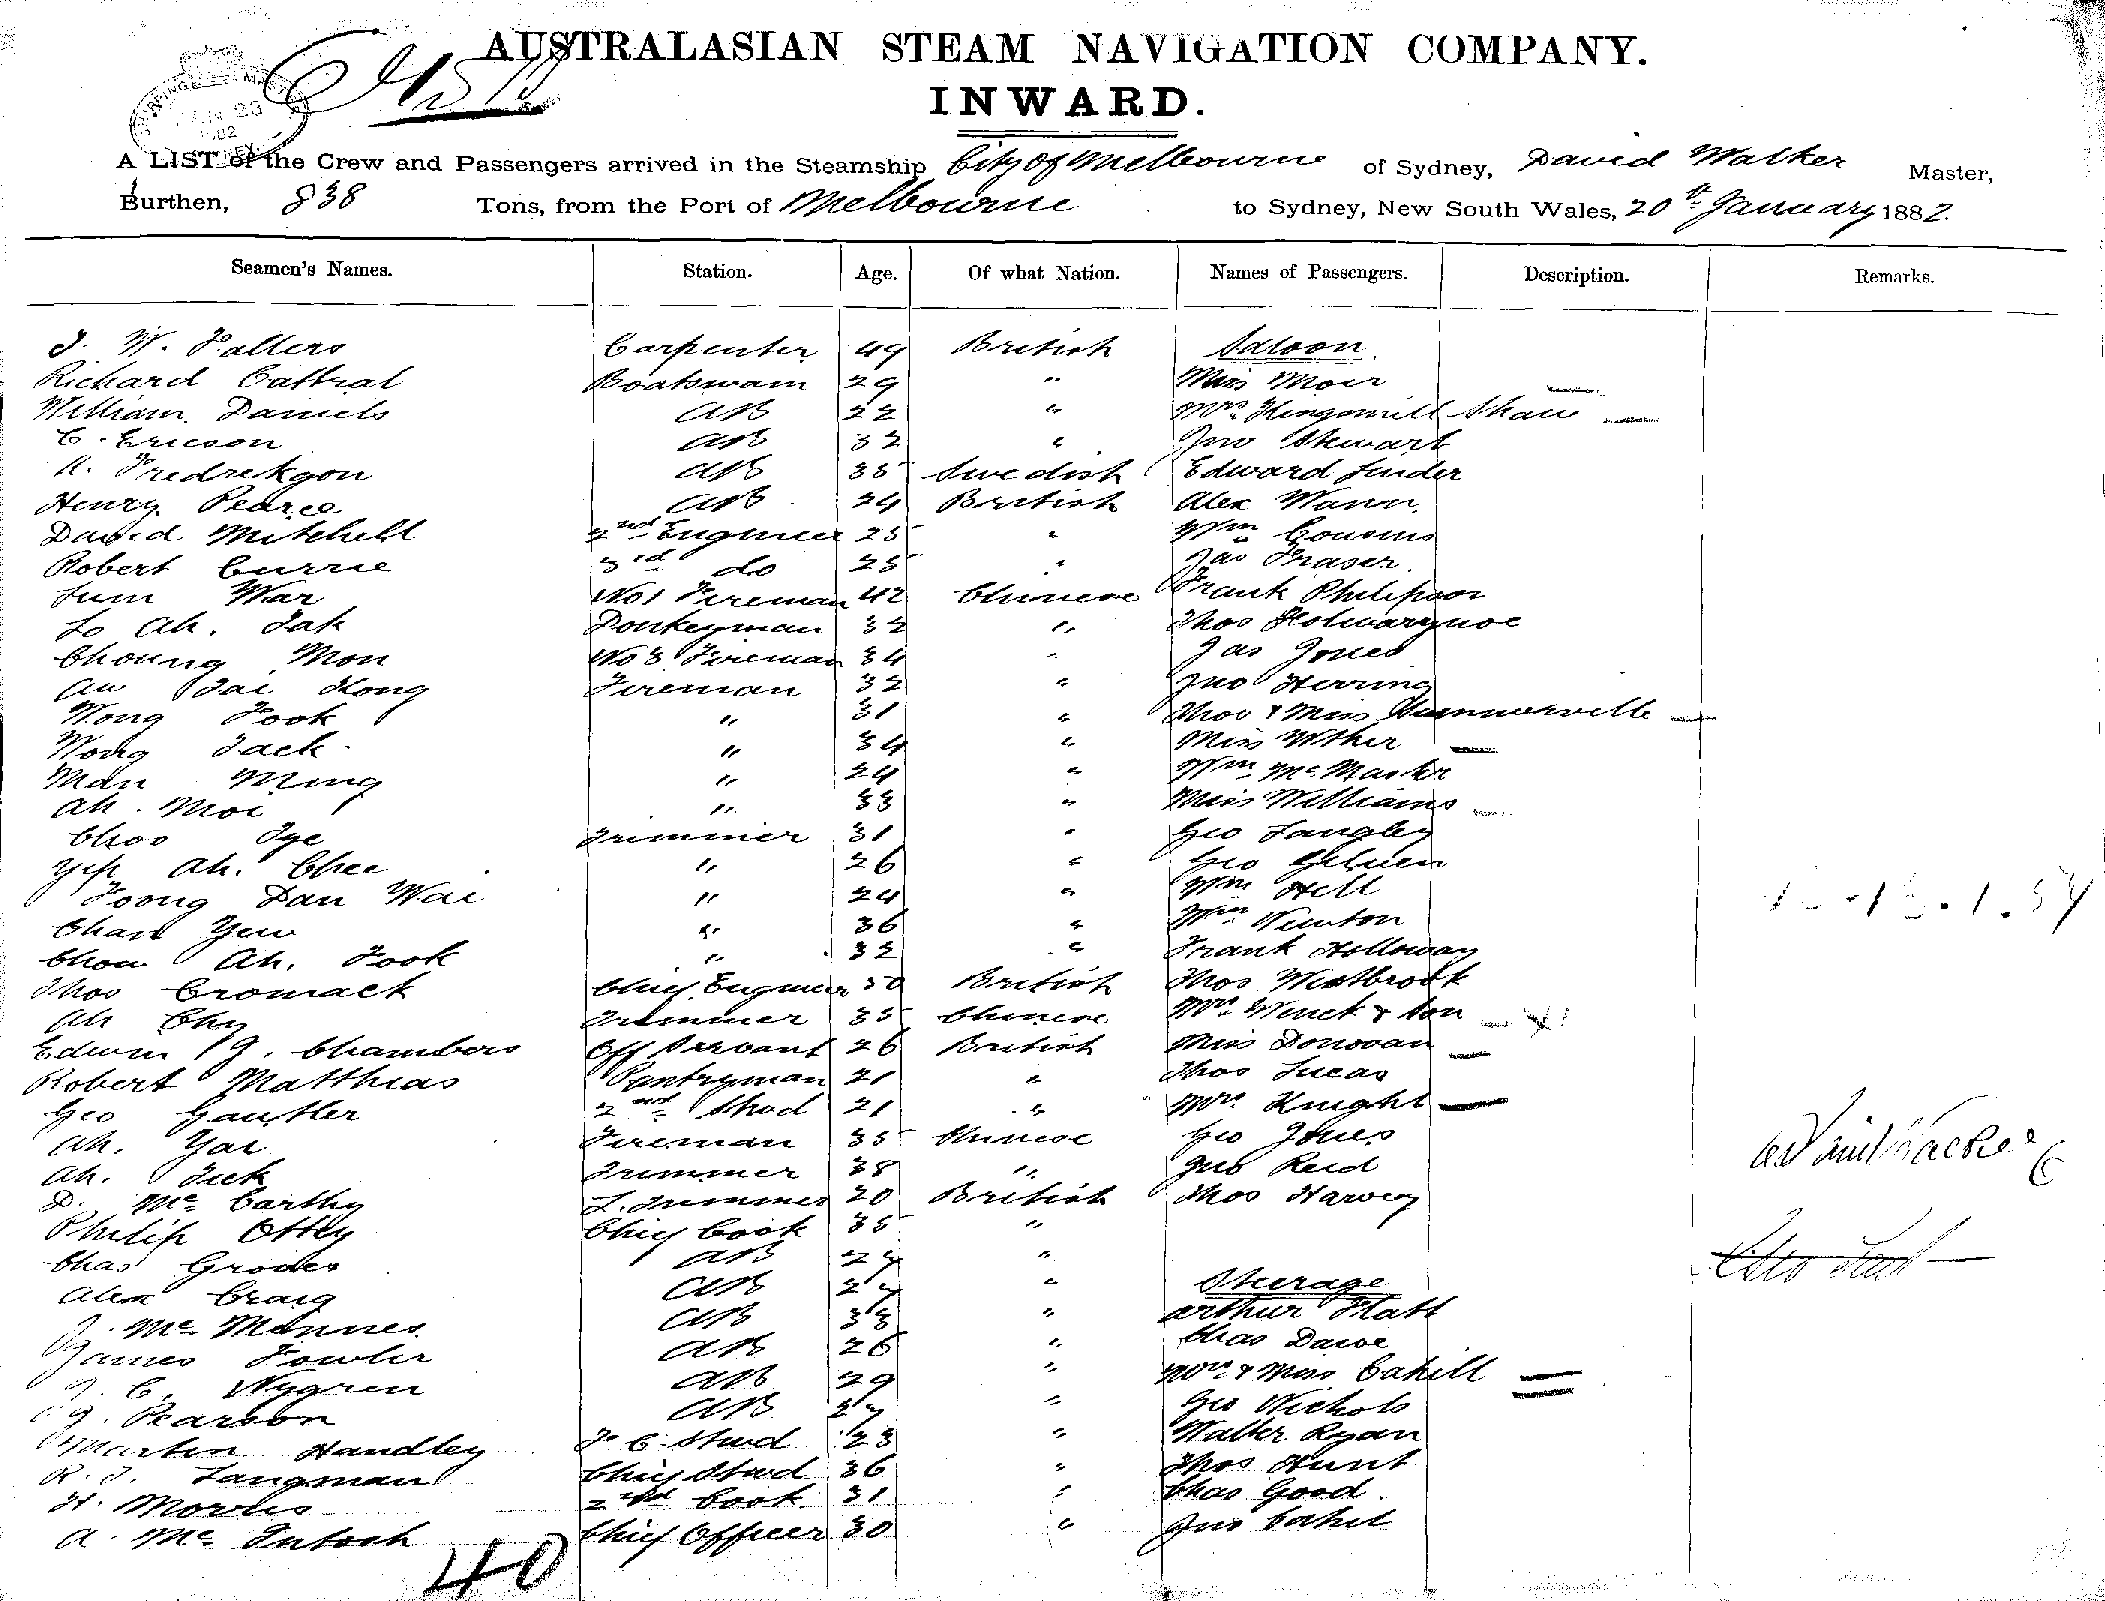 AUSTRALASIAN STEAM NAVIGATION COMPANY.
INWARD.
A LIST of the Crew and Passengers arrived in the Steamship City of Melbourne of Sydney, David Walker Master,
Burthen, 838 Tons, from the Port of Melbourne to Sydney, New South Wales, 20th January 1882.
Seamen's Names. Station. Age. Of what Nation. Names of Passengers. Description. Remarks.
J. W. Carpenter 49 British Saloon
Richard Cattral Boatswain 29 " Miss Moir
William Daniels AB 22 " Mrs Kingsmill Shaw
C. Ericson AB 32 " Jno Stewart
A. AB 35 Swedish Edward
Henry Pearce AB 24 British Alex
David Mitchell 2nd Engineer 25 " Wm Cousins
Robert Currie 3rd do 25 " Jas Fraser
War No 1 Fireman 42 Chinese Frank
Ah. Donkeyman 32 " Thos
Choung Mon No 3 Fireman 34 " Jas Jones
Tai Kong Fireman 32 " Jno Herring
Wong Fook " 31 " & Miss
Wong Jack " 34 " Miss
Man Ming " 24 " Wm McMaster
Ah. Moi " 33 " Miss Williams
Choo Trimmer 31 " Geo Langley
Yip Ah. Chee " 26 " Geo
Foong Dan Wai " 24 " Wm Hill
Chan Yew " 36 " Wm Newton
Chow Ah. Fook " 32 " Frank Holloway
Thos Cromack Chief Engineer 50 British Thos Westbrook
Ah Chy Trimmer 35 Chinese Mrs & Son
Edwin J. Chambers Off Servant 26 British Miss Donovan
Robert Matthias Pantryman 21 " Thos Lucas
Geo 2nd Stwd 21 " Mrs Knight
Ah. Yai Fireman 35 Chinese Geo Jones
Ah. Trimmer 38 " Jno Reid
D. McCarthy Trimmer 20 British Thos Harvey
Philip Ottey Chief Cook 35 "
Chas AB 27 "
Alex Craig AB 27 " Steerage
J. AB 33 " Arthur
James Fowler AB 26 " Chas Dawe
J. C. Nygren AB 29 " Mrs & Miss Cahill
J. Pearson AB 27 " Geo Nichols
Martin Handley F. C. Stwd 23 " Walter Ryan
R. J. Langman Chief Stwd 36 " Thos Hunt
H. Morris 2nd Cook 31 " Chas Good
A. McIntosh Chief Officer 30 " Jno Cahil
40
David Walker